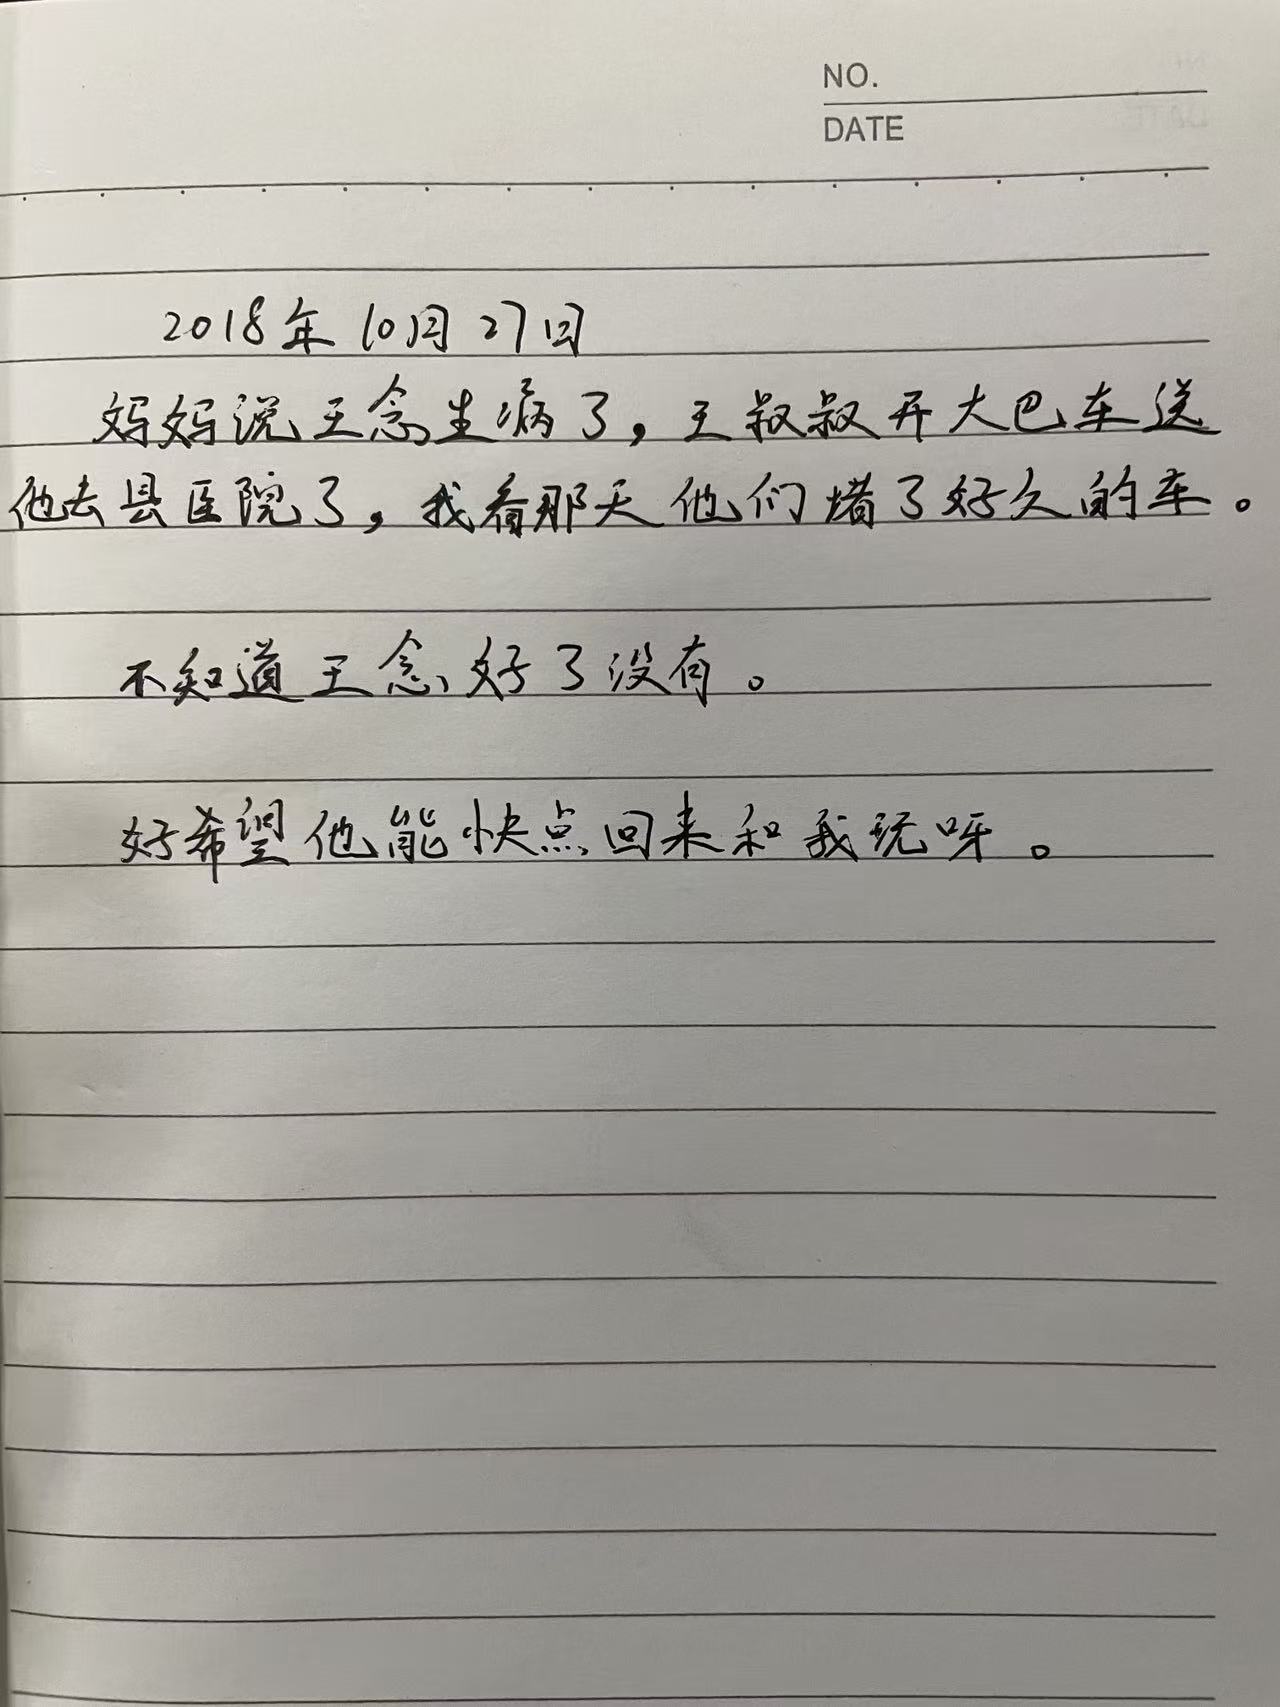 NO.
DATE
2018年10月27日
妈妈说王念生病了，王叔叔开大巴车送
他去县医院了，我看那天他们堵了好久的车。
不知道王念好了没有。
好希望他能快点回来和我玩呀。